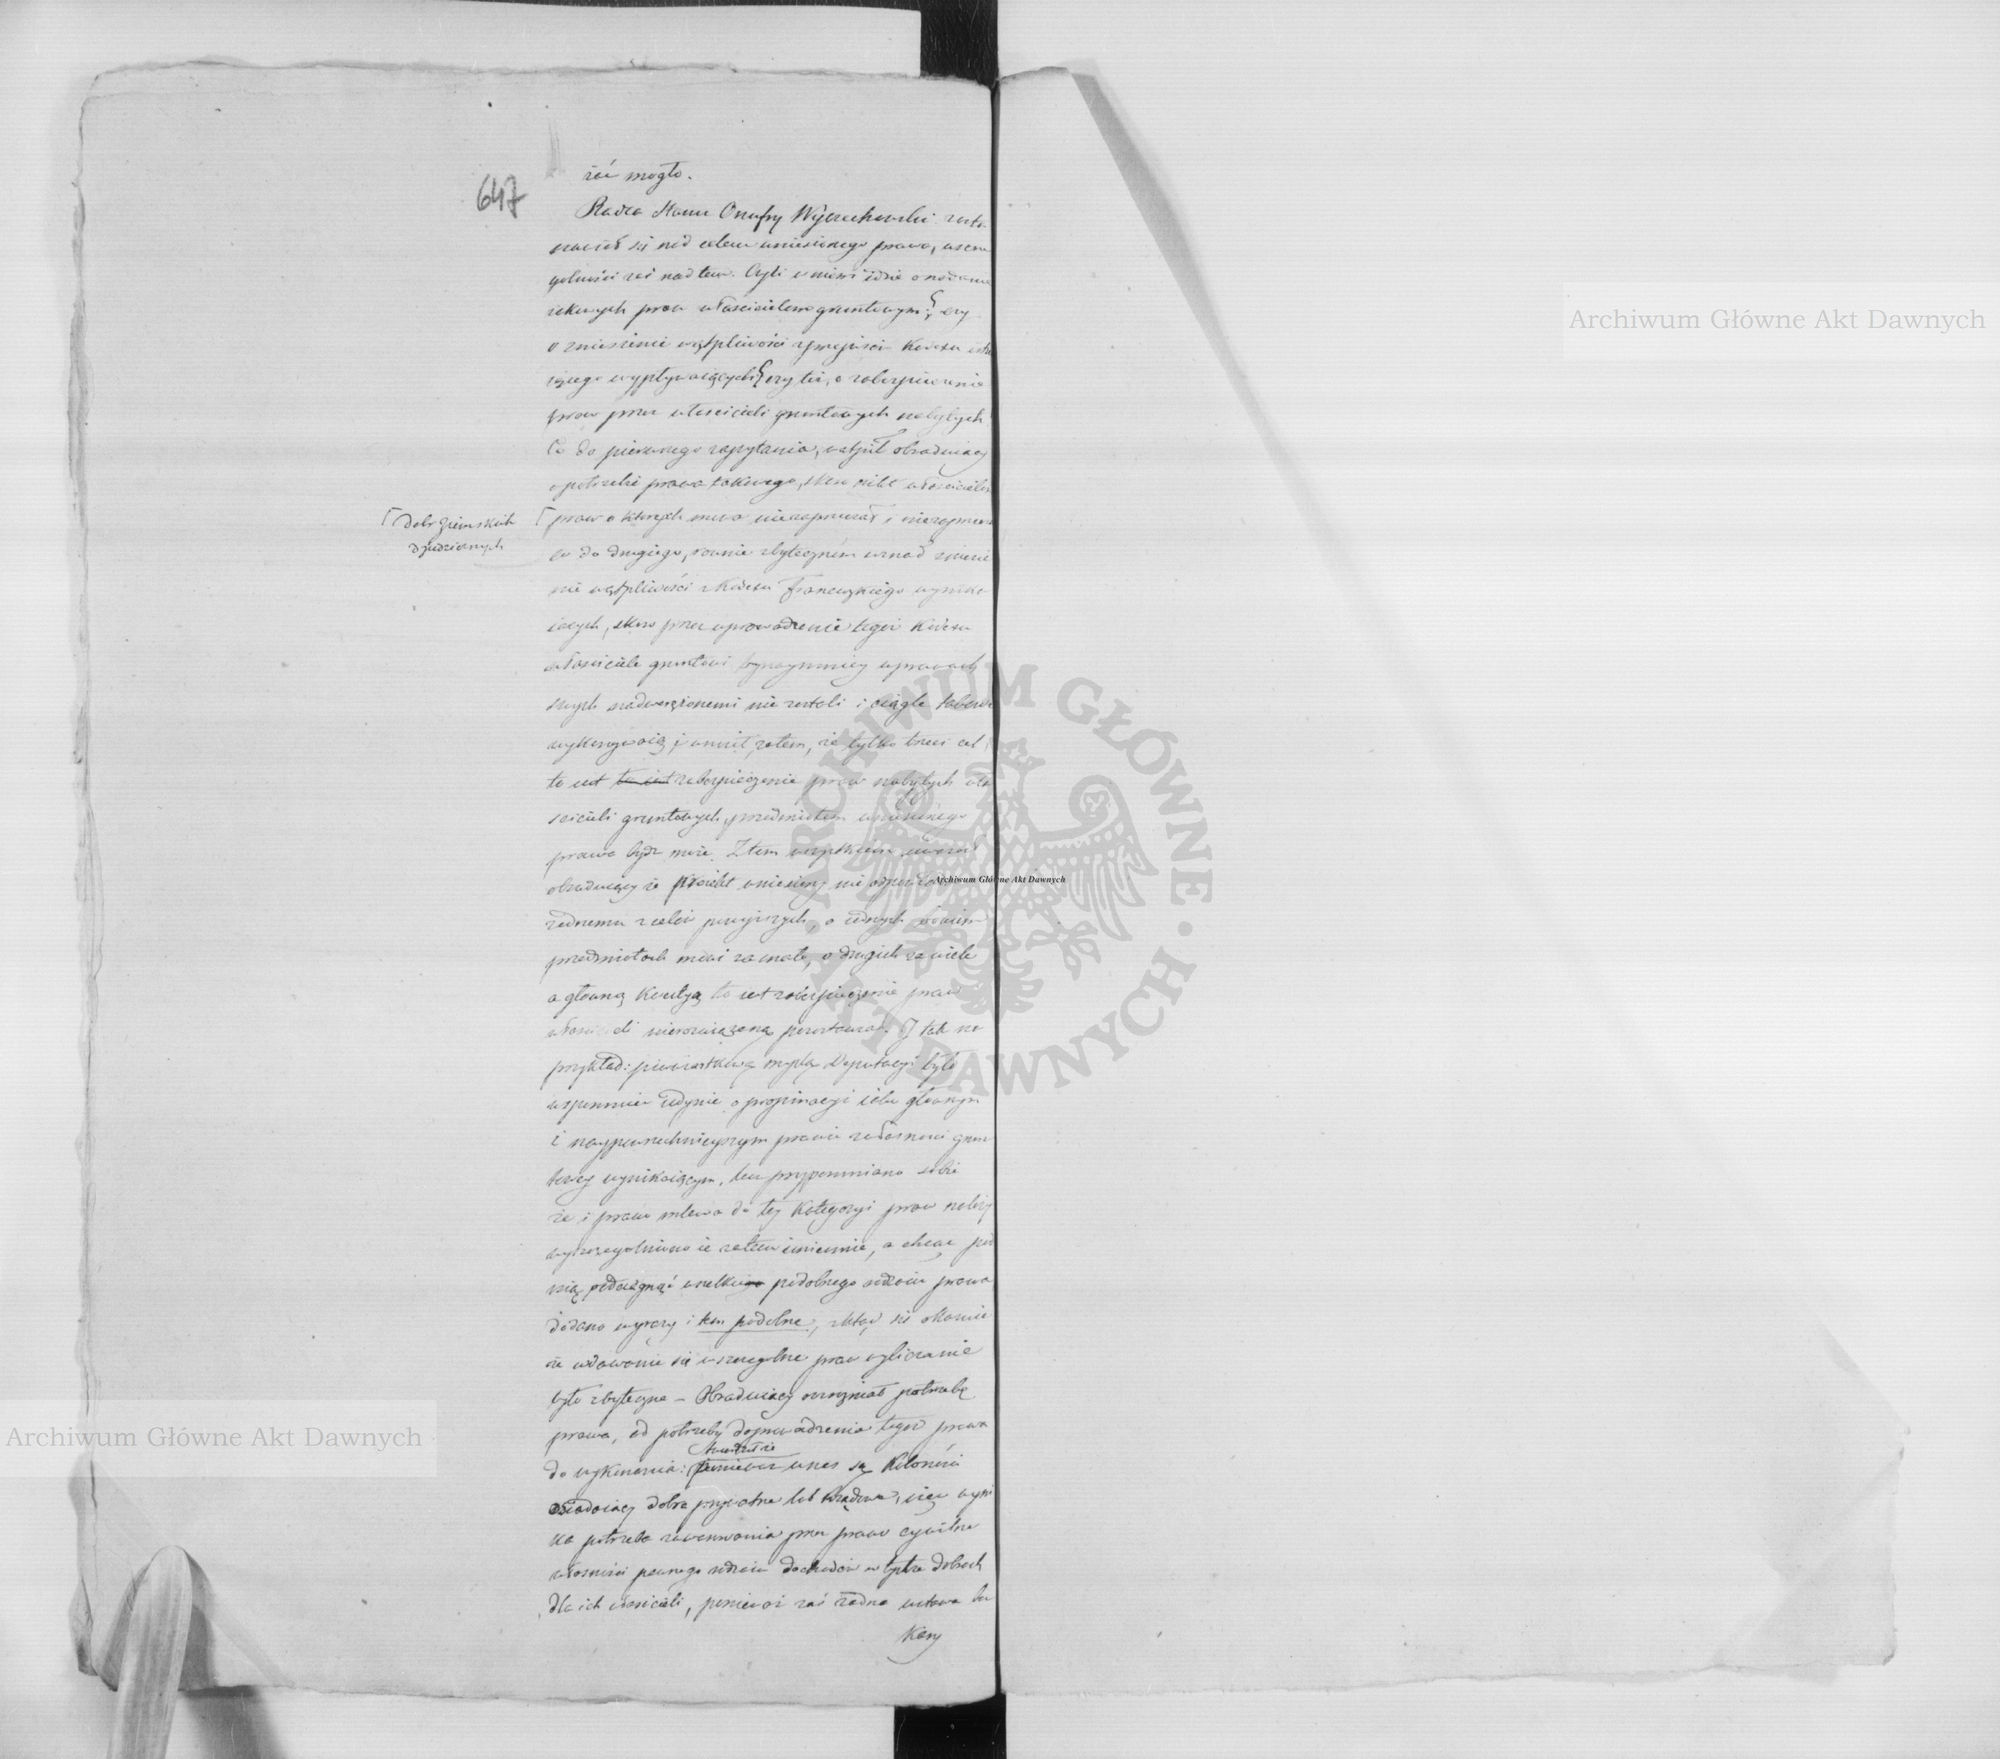 647
rać mogło.
Radca Stanu Onufry Wyczechowski zasta-
nawiał się nad celem wniesionego prawa, w szcze
gólności zaś nad tem. Czyli w niem idzie o nadanie
iakowych praw właścicielom gruntowym? czy
o zniesienie wątpliwości z przepisów Kodexu istnie
iącego wypływaiących? czy też, o zabezpieczenie
praw przez właścicieli gruntowych nabytych
Co do pierwszego zapytania, wątpił obraduiący
o potrzebie prawa takowego, skoro nikt właścicielom
⌈ Dobr Ziemskich
dziedzicznych
⌈ praw o których mowa nie zaprzeczał i nie zaprzecza
co do drugiego, równie zbytecznem uznał zniesie
nie wątpliwości z Kodexu francuzkiego wynika-
iących, skoro przez wprowadzenie tegoż Kodexu
właściciele gruntowi bynaymniey w prawach
swych nadwerężonemi nie zostali i ciągle takowe
wykonywaią; wniósł zatem, że tylko trzeci cel
to iest to iest zabezpieczenie praw nabytych wła
ścicieli gruntowych, przedmiotem wniesionego
prawa bydź może. Z tem wszystkiem uważał
obraduiący że Proiekt wniesiony nie odpowiada
żadnemu z celów powyższych, o iednych bowiem
przedmiotach mówi za mało, o drugich za wiele
a główną kwestyą to iest zabezpieczenie praw
właścicieli nierozwiązaną pozostawia. I tak na
przykład: pierwiastkową myślą Deputacyi było
wspomnieć iedynie o propinacyi iako głównym
i naypowszechnieyszym prawie z własności grun
towey wynikaiącym, lecz przypomniano sobie
że i prawo mlewa do tey kategoryi praw należy
wyszczególniono ie zatem imiennie, a chcąc pod
nią podciągnąć wszelkiego podobnego rodzaiu prawa
dodano wyrazy i tem podobne, ztąd się okazuie
że wdawanie się w szczególne praw wyliczanie
było zbyteczne – Obraduiący rozróżniał potrzebę
prawa, od potrzeby doprowadzenia tegoż prawa
do wykonania: Ponieważ u nas są Koloniści
osiadaiący dobra prywatne lub Rządowe, więc wyni
ka potrzeba zawarowania przez prawo cywilne
własności pewnego rodzaiu dochodów w tychże dobrach
dla ich właścicieli, ponieważ zaś żadna ustawa bez
Kary
Archiwum Główne Akt Dawnych
Archiwum Główne Akt Dawnych
Archiwum Główne Akt Dawnych
ARCHIWUM GŁÓWNE · AKT DAWNYCH ·